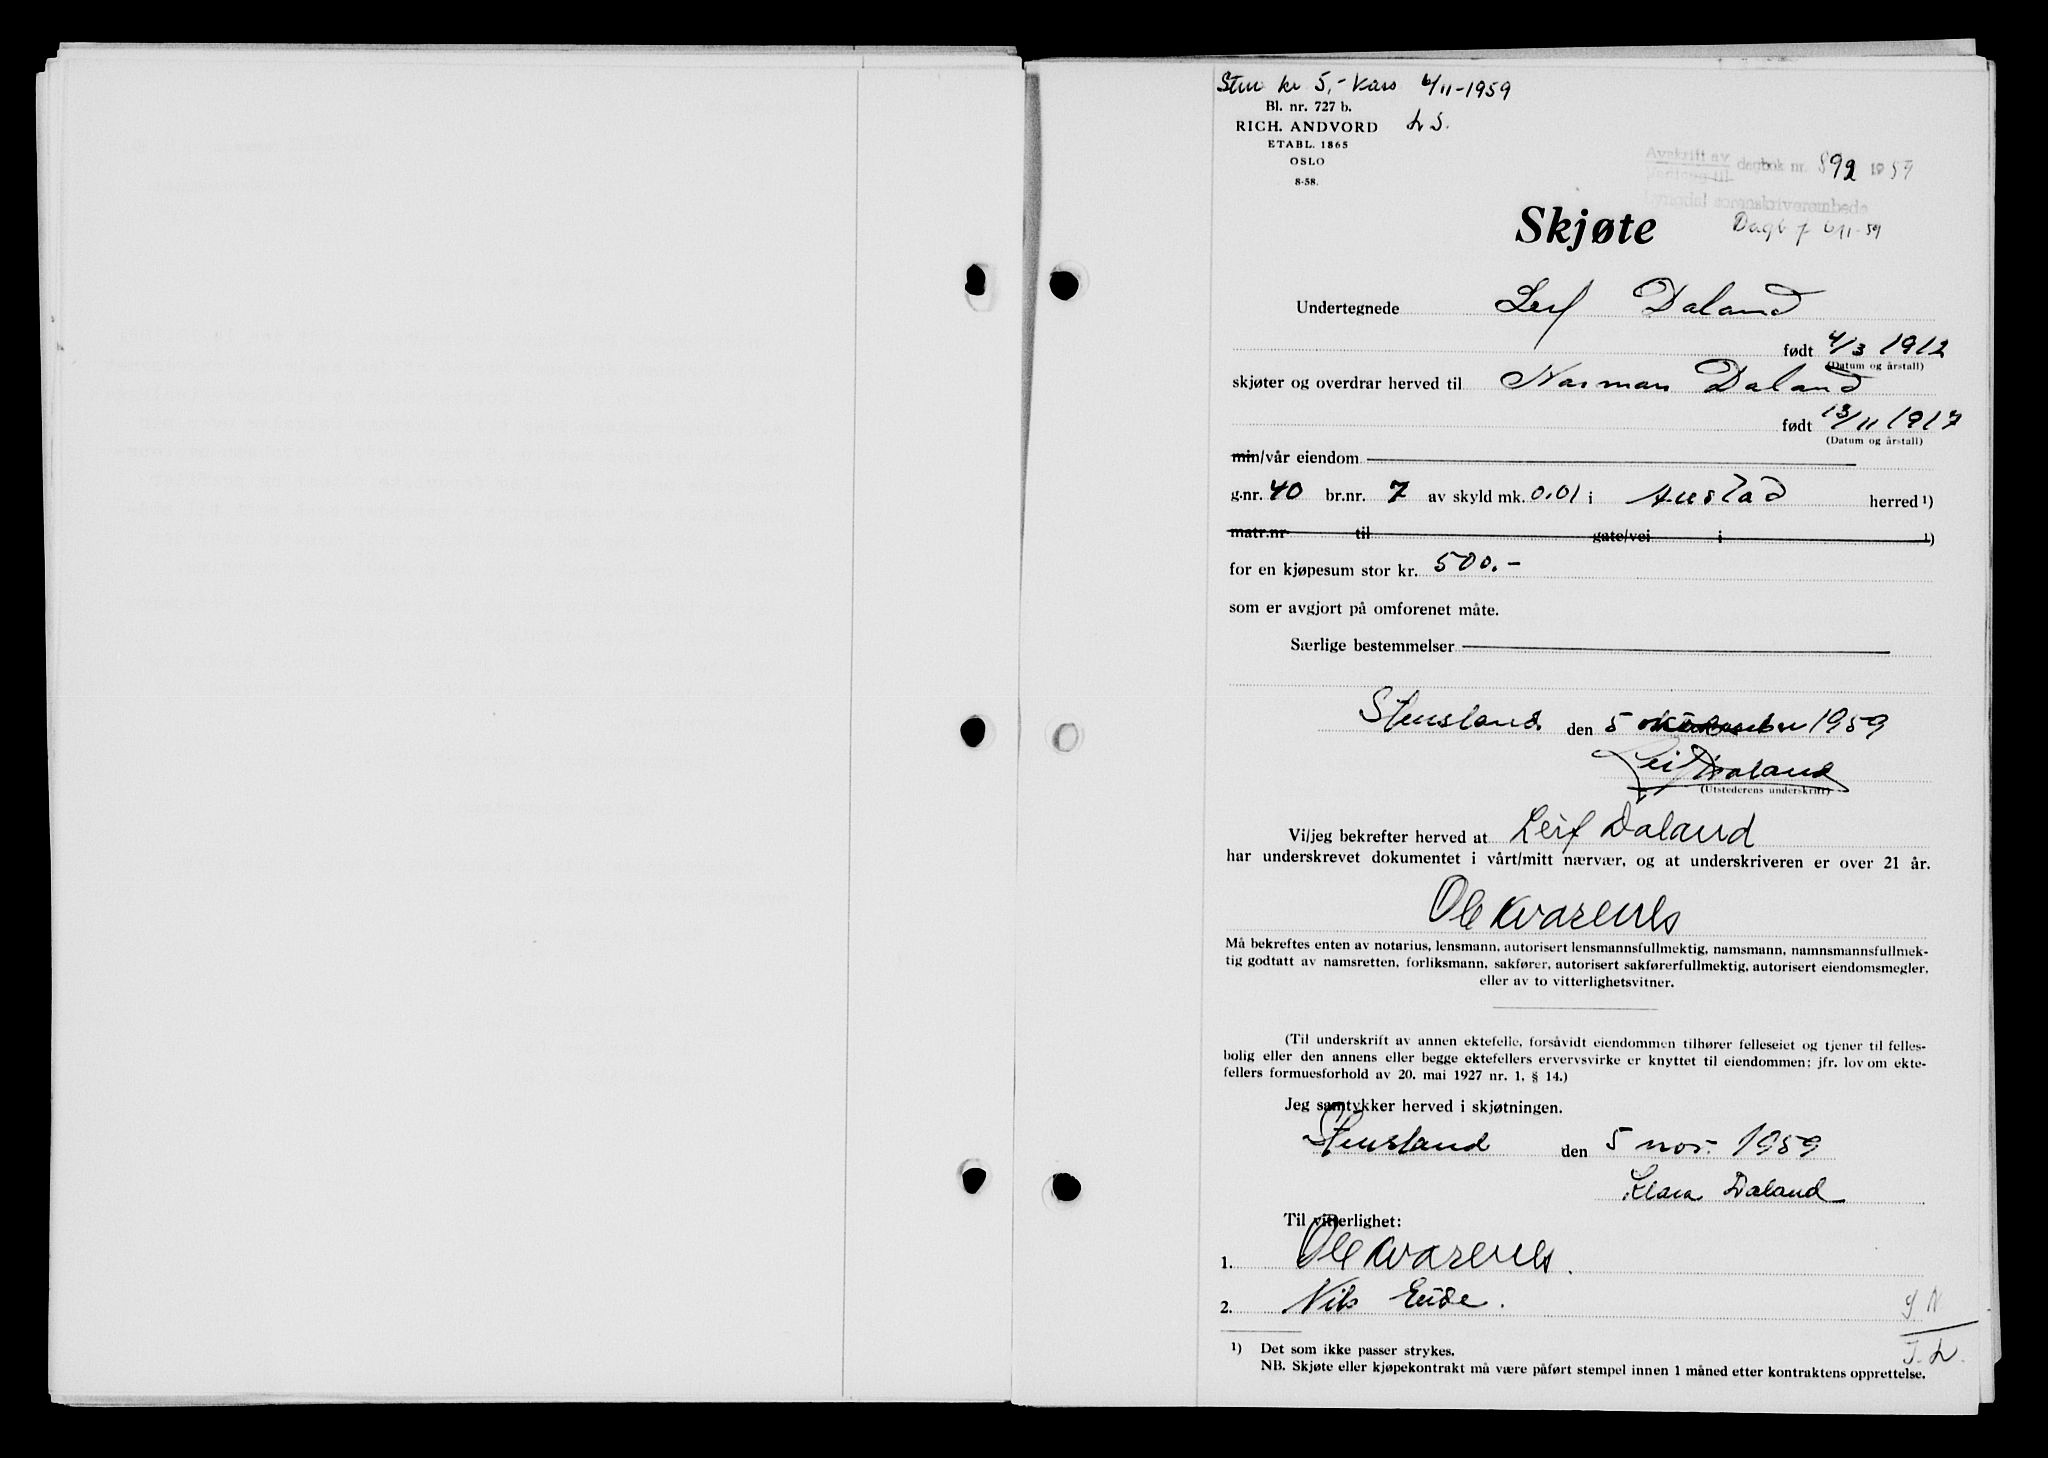 Stem kr 5,- Kass 6/11-1959
Bl. nr. 727 b.
RICH. ANDVORD LS.
ETABL. 1865
OSLO
8-58.
Avskrift av dagbok nr. 892 1959
Lyngdal sorenskriverembede
Dagb f 6/11-59
Skjøte
Undertegnede Leif Daland
født 4/3 1912
(Datum og årstall)
skjøter og overdrar herved til Norman Daland
født 13/11 1917
(Datum og årstall)
min/vår eiendom
g.nr. 40 br.nr. 7 av skyld mk. 0.01 i Austad herred ¹)
matr.nr til gate/vei i ¹)
for en kjøpesum stor kr. 500.-
som er avgjort på omforenet måte.
Særlige bestemmelser
den 5 1959
Leif Daland
(Utstederens underskrift)
Vi/jeg bekrefter herved at Leif Daland
har underskrevet dokumentet i vårt/mitt nærvær, og at underskriveren er over 21 år.
Ole Kvarenes
Må bekreftes enten av notarius, lensmann, autorisert lensmannsfullmektig, namsmann, namnsmannsfullmek-
tig godtatt av namsretten, forliksmann, sakfører, autorisert sakførerfullmektig, autorisert eiendomsmegler,
eller av to vitterlighetsvitner.
(Til underskrift av annen ektefelle, forsåvidt eiendommen tilhører felleseiet og tjener til felles-
bolig eller den annens eller begge ektefellers ervervsvirke er knyttet til eiendommen: jfr. lov om ekte-
fellers formuesforhold av 20. mai 1927 nr. 1, § 14.)
Jeg samtykker herved i skjøtningen.
den 5 nov. 1959
Klara Daland
Til vitterlighet:
1. Ole Kvarenes.
2. Nils Eide.
¹) Det som ikke passer strykes.
NB. Skjøte eller kjøpekontrakt må være påført stempel innen 1 måned etter kontraktens opprettelse.